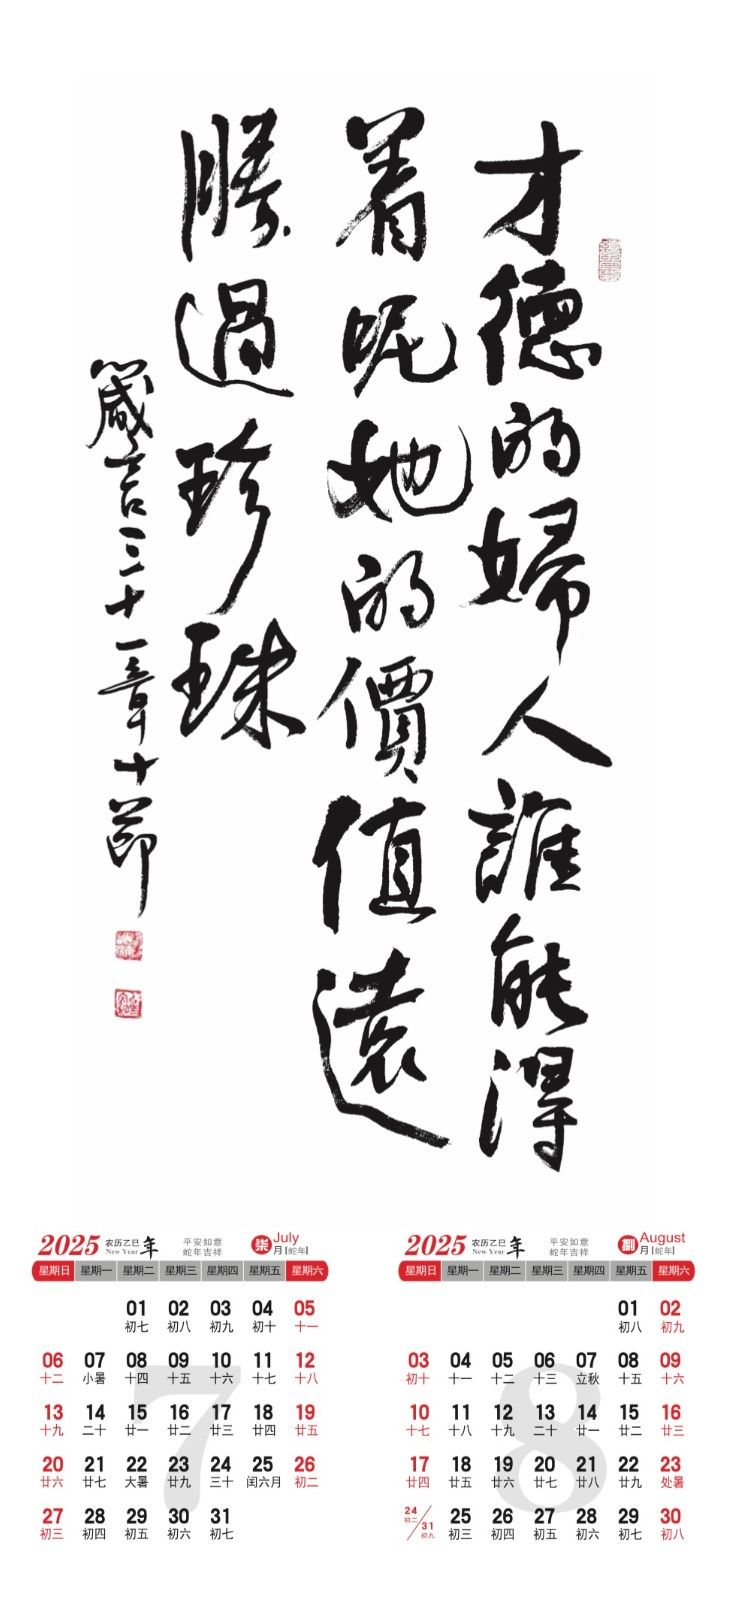 才德的婦人誰能得
着呢她的價值遠
勝過珍珠
箴言三十一章十節
2025 农历乙巳 New Year 年 平安如意 蛇年吉祥 柒 July 月[蛇年]
星期日 星期一 星期二 星期三 星期四 星期五 星期六
01 02 03 04 05
初七 初八 初九 初十 十一
06 07 08 09 10 11 12
十二 小暑 十四 十五 十六 十七 十八
13 14 15 16 17 18 19
十九 二十 廿一 廿二 廿三 廿四 廿五
20 21 22 23 24 25 26
廿六 廿七 大暑 廿九 三十 闰六月 初二
27 28 29 30 31
初三 初四 初五 初六 初七
7
2025 农历乙巳 New Year 年 平安如意 蛇年吉祥 捌 August 月[蛇年]
星期日 星期一 星期二 星期三 星期四 星期五 星期六
01 02
初八 初九
03 04 05 06 07 08 09
初十 十一 十二 十三 立秋 十五 十六
10 11 12 13 14 15 16
十七 十八 十九 二十 廿一 廿二 廿三
17 18 19 20 21 22 23
廿四 廿五 廿六 廿七 廿八 廿九 处暑
24/31 25 26 27 28 29 30
初二 初九 初三 初四 初五 初六 初七 初八
8